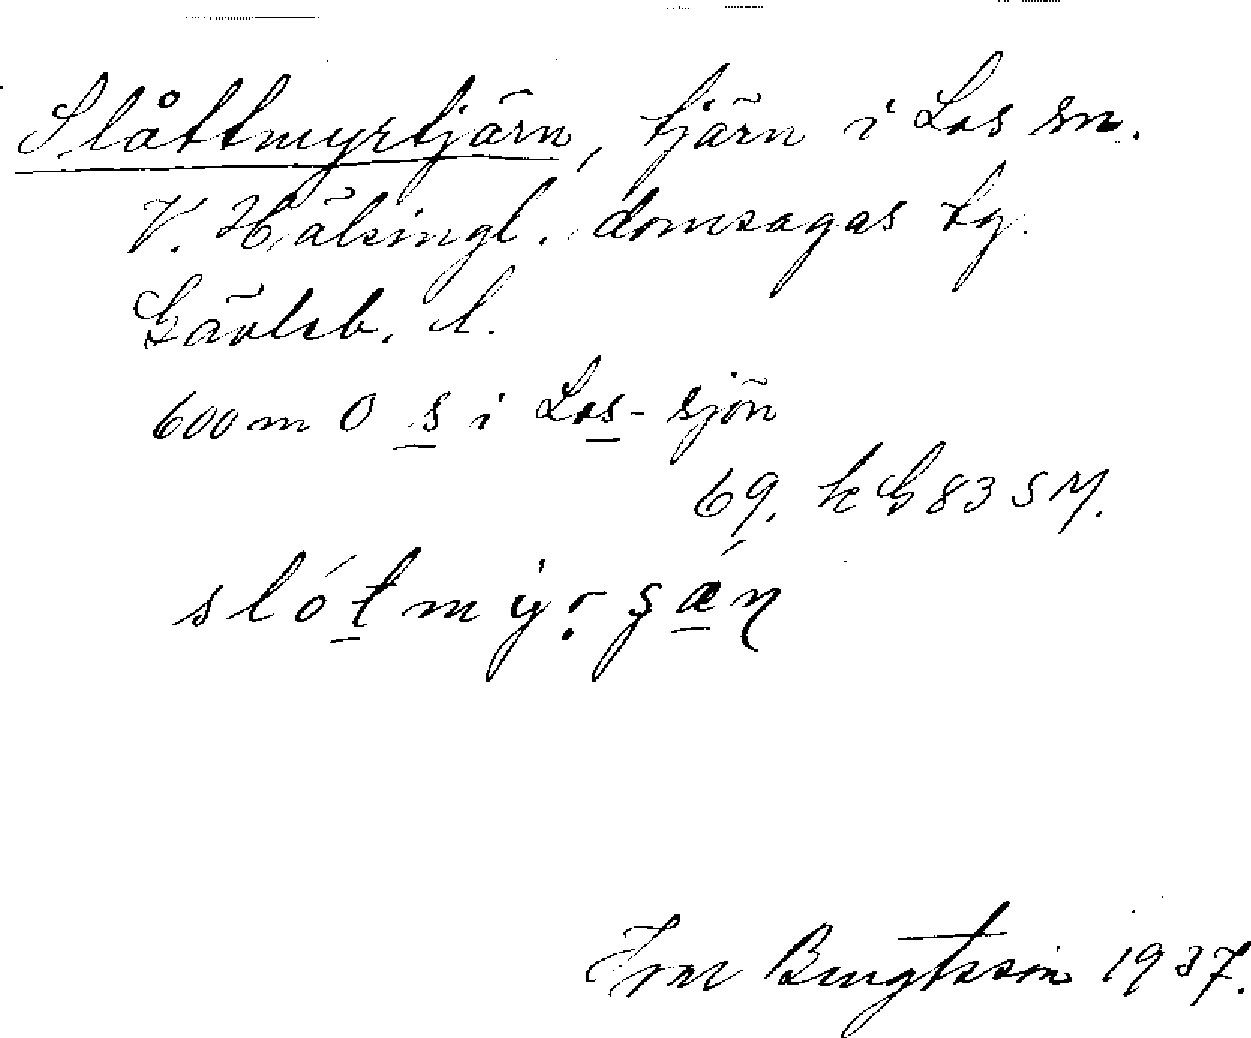 Slåttmyrtjärn, tjärn i Los sn.
V. Hälsingl. domsagas tg.
Gävleb. l.
600 m O s i Los-sjön
69. k G 83 S M.
slótmyr
Bengtsson 1937.